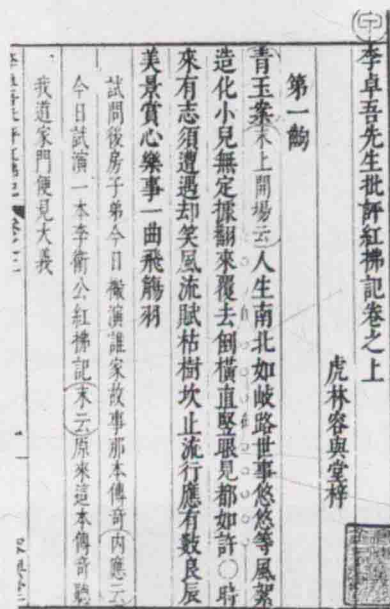 李卓吾先生批評紅拂記卷之上
虎林容與堂梓
第一齣
青玉案（末上開場云）人生南北如岐路世事悠悠等風絮
造化小兒無定據翻來覆去倒橫直竪眼見都如許〇時
來有志須遭遇却笑風流賦枯樹坎止流行應有數良辰
美景賞心樂事一曲飛觴羽
試問後房子弟今日搬演誰家故事那本傳奇（內應云）
今日試演一本李衛公紅拂記（末云）原來這本傳奇聽
我道家門便見大義
李卓吾批評紅拂記 卷之上 一